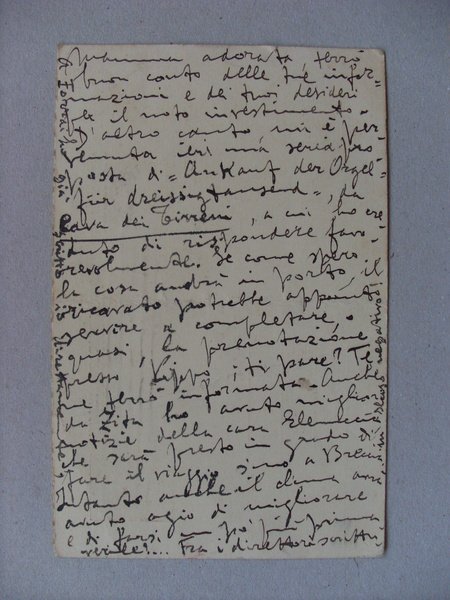 Mamma adorata, terrò
buon conto delle tue infor-
mazioni e dei tuoi desideri
per il noto investimento.
D'altro canto, mi è per-
venuta ieri una seria pro-
posta di "Ankauf der Orgel
für dreissigtausend", da
Cava dei Tirreni, a cui ho cre-
duto di rispondere favo-
revolmente. Se come spero
la cosa andrà in porto, il
ricavato potrebbe appunto
servire a completare, o
quasi, la prenotazione
presso Pippo; ti pare? Te
ne terrò informata. Anche
da Zita ho avuto migliori
notizie della cara Elenuccia
che sarà presto in grado di
fare il viaggio sino a
Intanto anche il clima avrà
avuto agio di migliorare
e di farsi un po' più prima-
verile!... Fra i direttori scritti
già
direttamente
in senso negativo!